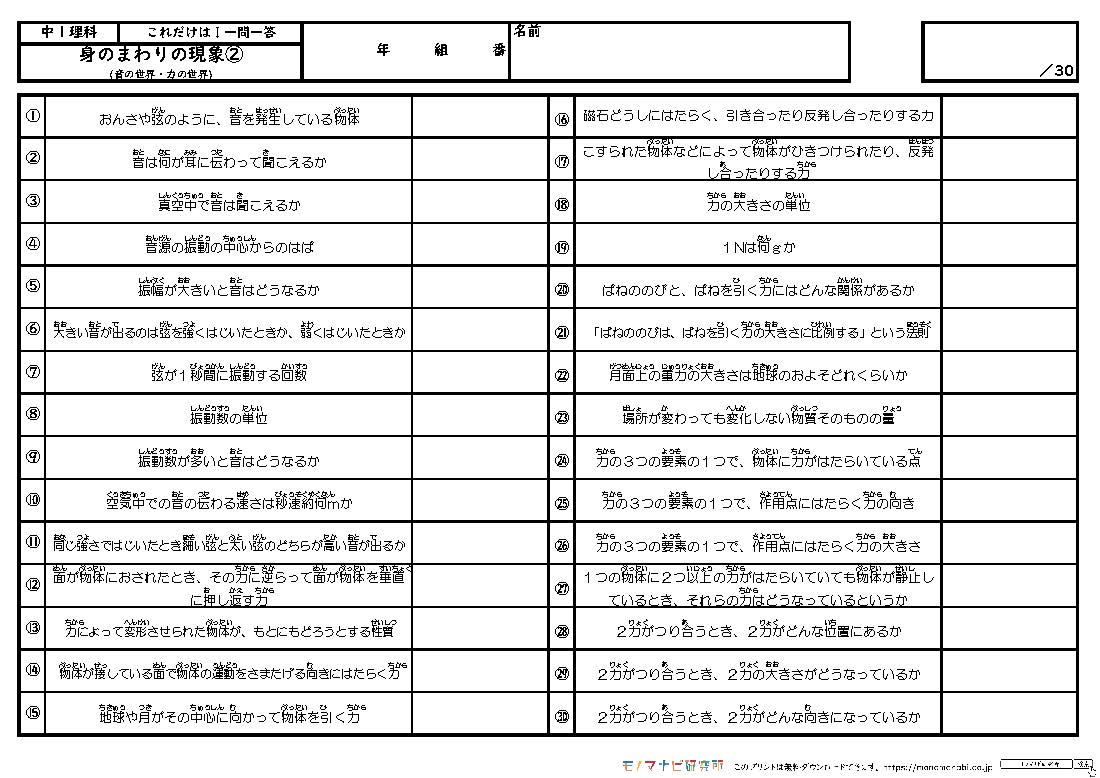 中1理科
これだけは!一問一答
身のまわりの現象②
(音の世界・力の世界)
年 組 番
名前
／30
① おんさや弦のように、音を発生している物体
② 音は何が耳に伝わって聞こえるか
③ 真空中で音は聞こえるか
④ 音源の振動の中心からのはば
⑤ 振幅が大きいと音はどうなるか
⑥ 大きい音が出るのは弦を強くはじいたときか、弱くはじいたときか
⑦ 弦が1秒間に振動する回数
⑧ 振動数の単位
⑨ 振動数が多いと音はどうなるか
⑩ 空気中での音の伝わる速さは秒速約何mか
⑪ 同じ強さではじいたとき細い弦と太い弦のどちらが高い音が出るか
⑫ 面が物体におされたとき、その力に逆らって面が物体を垂直
に押し返す力
⑬ 力によって変形させられた物体が、もとにもどろうとする性質
⑭ 物体が接している面で物体の運動をさまたげる向きにはたらく力
⑮ 地球や月がその中心に向かって物体を引く力
⑯ 磁石どうしにはたらく、引き合ったり反発し合ったりする力
⑰ こすられた物体などによって物体がひきつけられたり、反発
し合ったりする力
⑱ 力の大きさの単位
⑲ 1Nは何gか
⑳ ばねののびと、ばねを引く力にはどんな関係があるか
㉑ 「ばねののびは、ばねを引く力の大きさに比例する」という法則
㉒ 月面上の重力の大きさは地球のおよそどれくらいか
㉓ 場所が変わっても変化しない物質そのものの量
㉔ 力の3つの要素の1つで、物体に力がはたらいている点
㉕ 力の3つの要素の1つで、作用点にはたらく力の向き
㉖ 力の3つの要素の1つで、作用点にはたらく力の大きさ
㉗ 1つの物体に2つ以上の力がはたらいていても物体が静止し
ているとき、それらの力はどうなっているというか
㉘ 2力がつり合うとき、2力がどんな位置にあるか
㉙ 2力がつり合うとき、2力の大きさがどうなっているか
㉚ 2力がつり合うとき、2力がどんな向きになっているか
モノマナビ研究所 このプリントは無料ダウンロードできます。https://monomanabi.co.jp